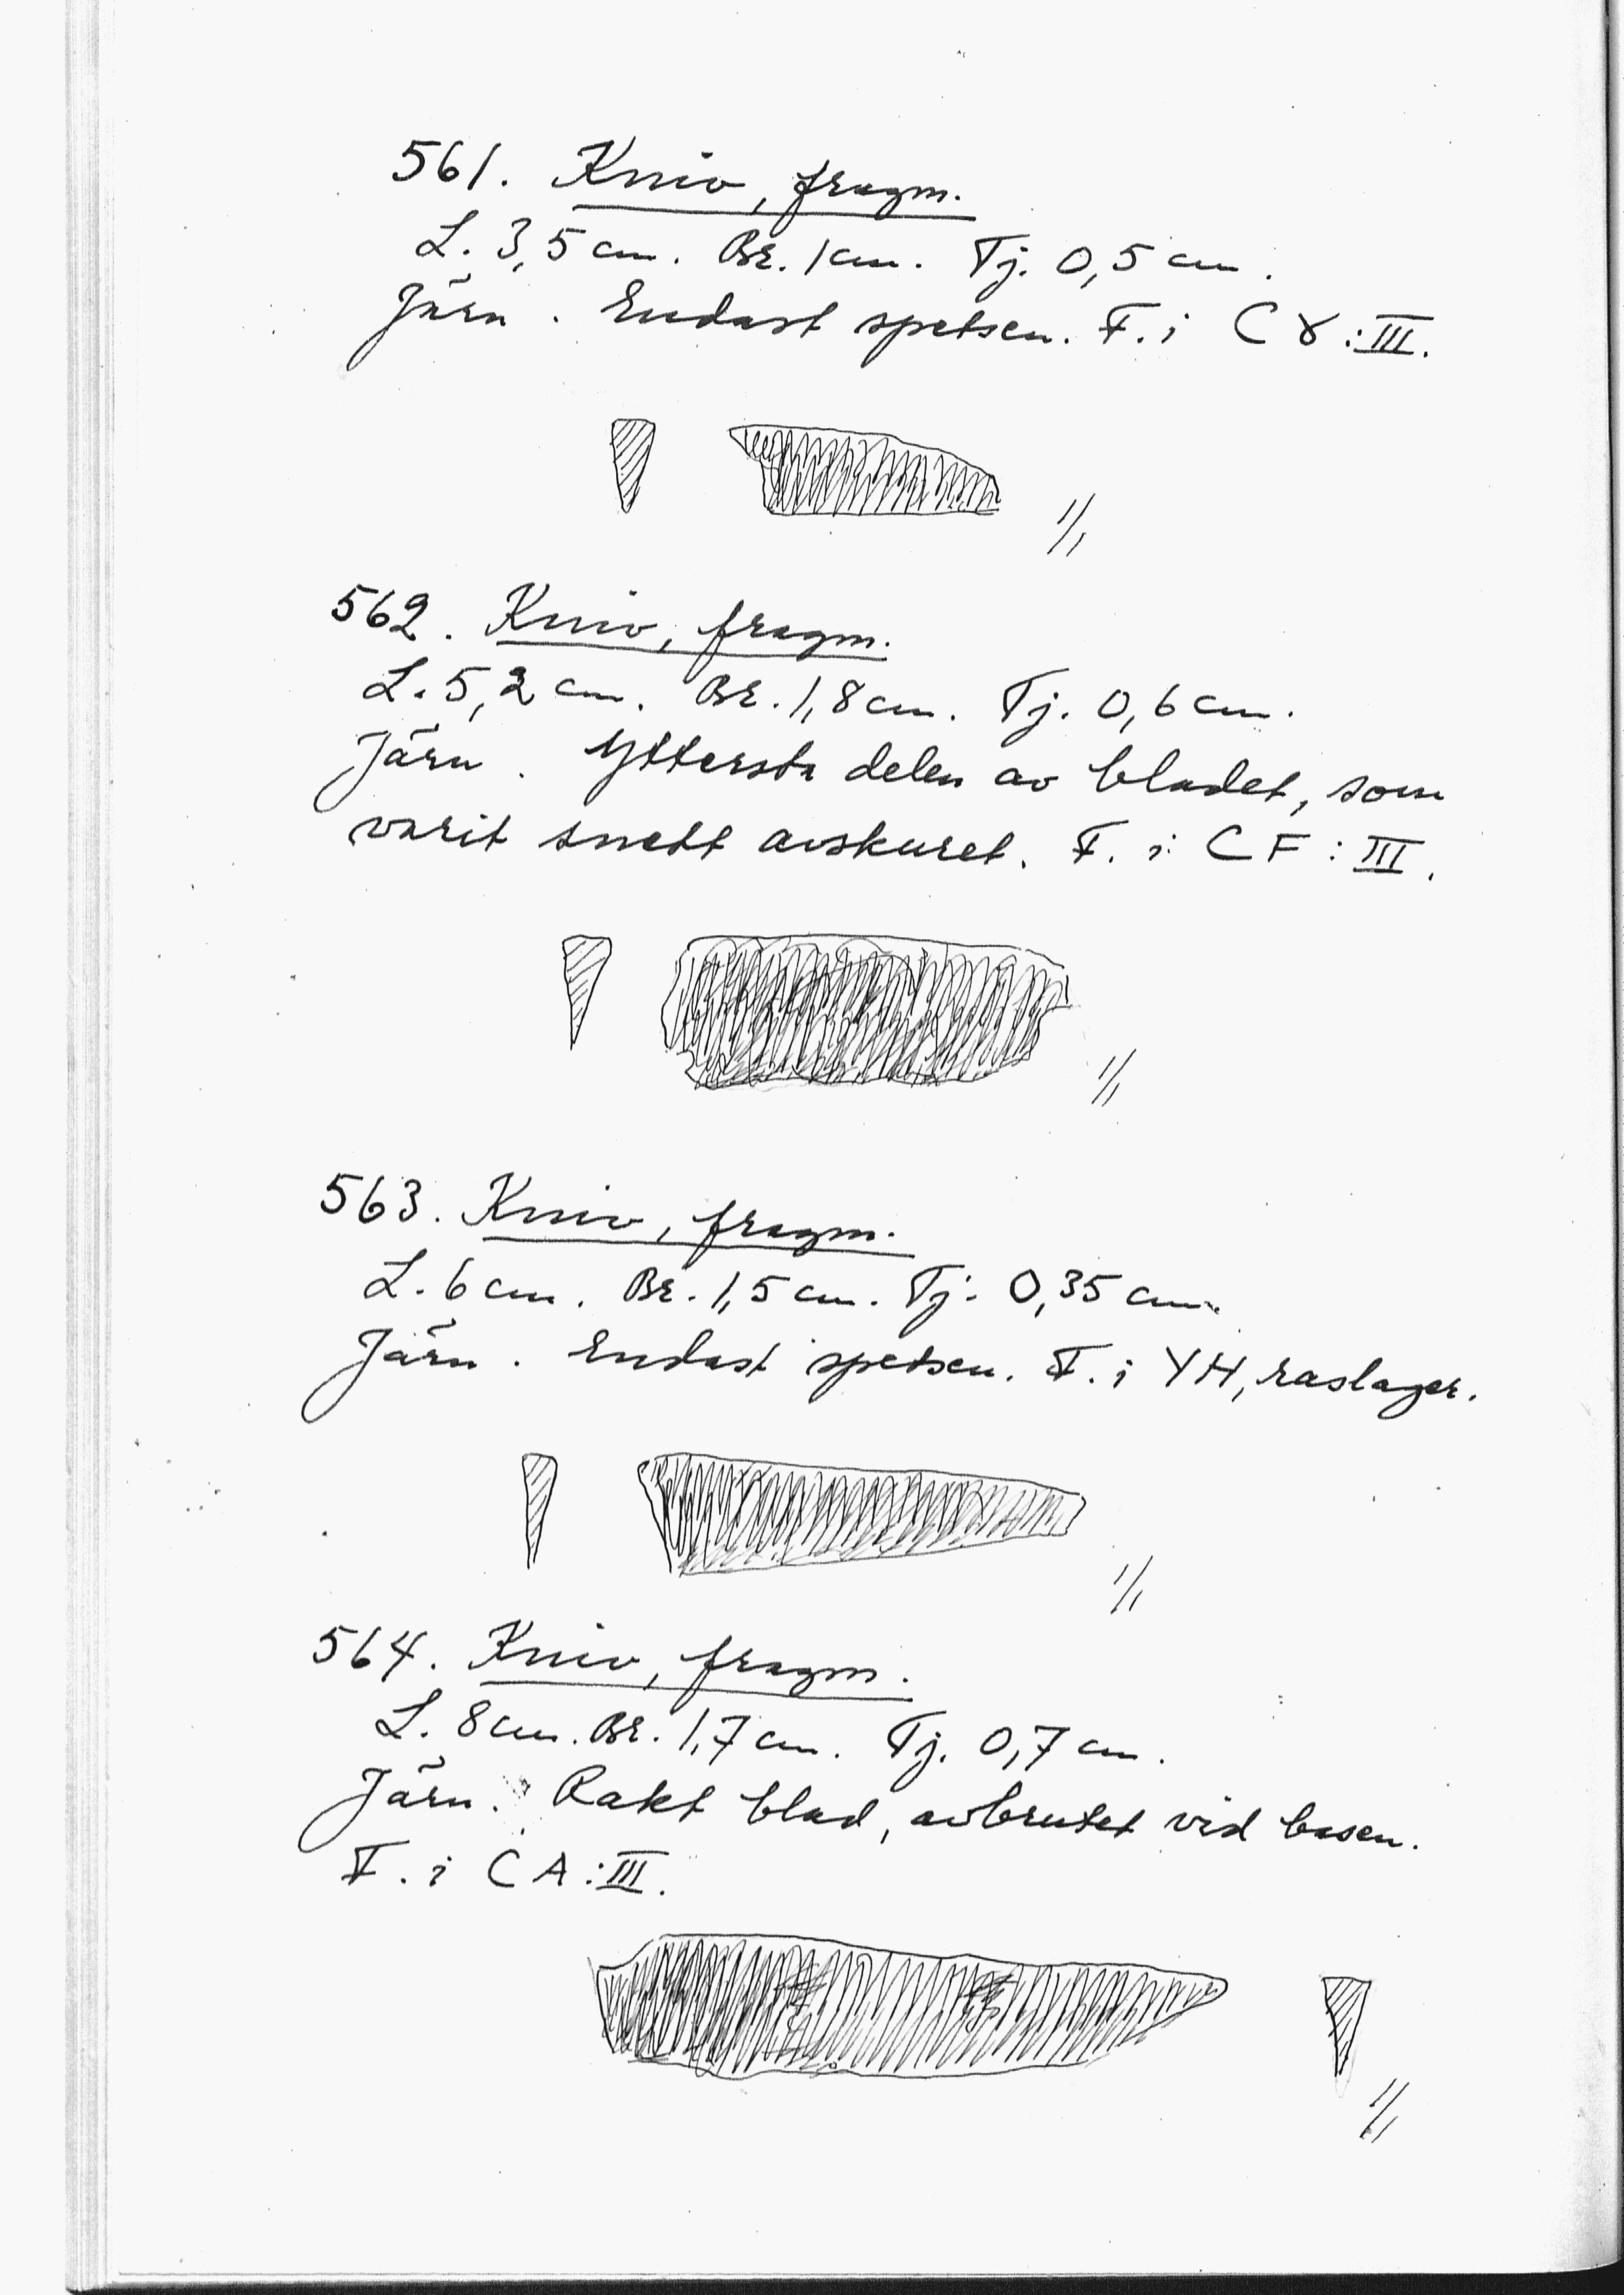 561. Kniv, fragm.
L. 3,5 cm. Br. 1 cm. Tj. 0,5 cm.
Järn. Endast spetsen. F. i C Y:III.
1/1
562. Kniv, fragm.
L. 5,2 cm. Br. 1,8 cm. Tj. 0,6 cm.
Järn. Yttersta delen av bladet, som
varit snett avskuret. F. i CF:III.
1/1
563. Kniv, fragm.
L. 6 cm. Br. 1,5 cm. Tj. 0,35 cm.
Järn. Endast spetsen. F. i YH, raslager.
1/1
564. Kniv, fragm.
L. 8 cm. Br. 1,7 cm. Tj. 0,7 cm.
Järn. Rakt blad, avbrutet vid basen.
F. i CA:III.
1/1